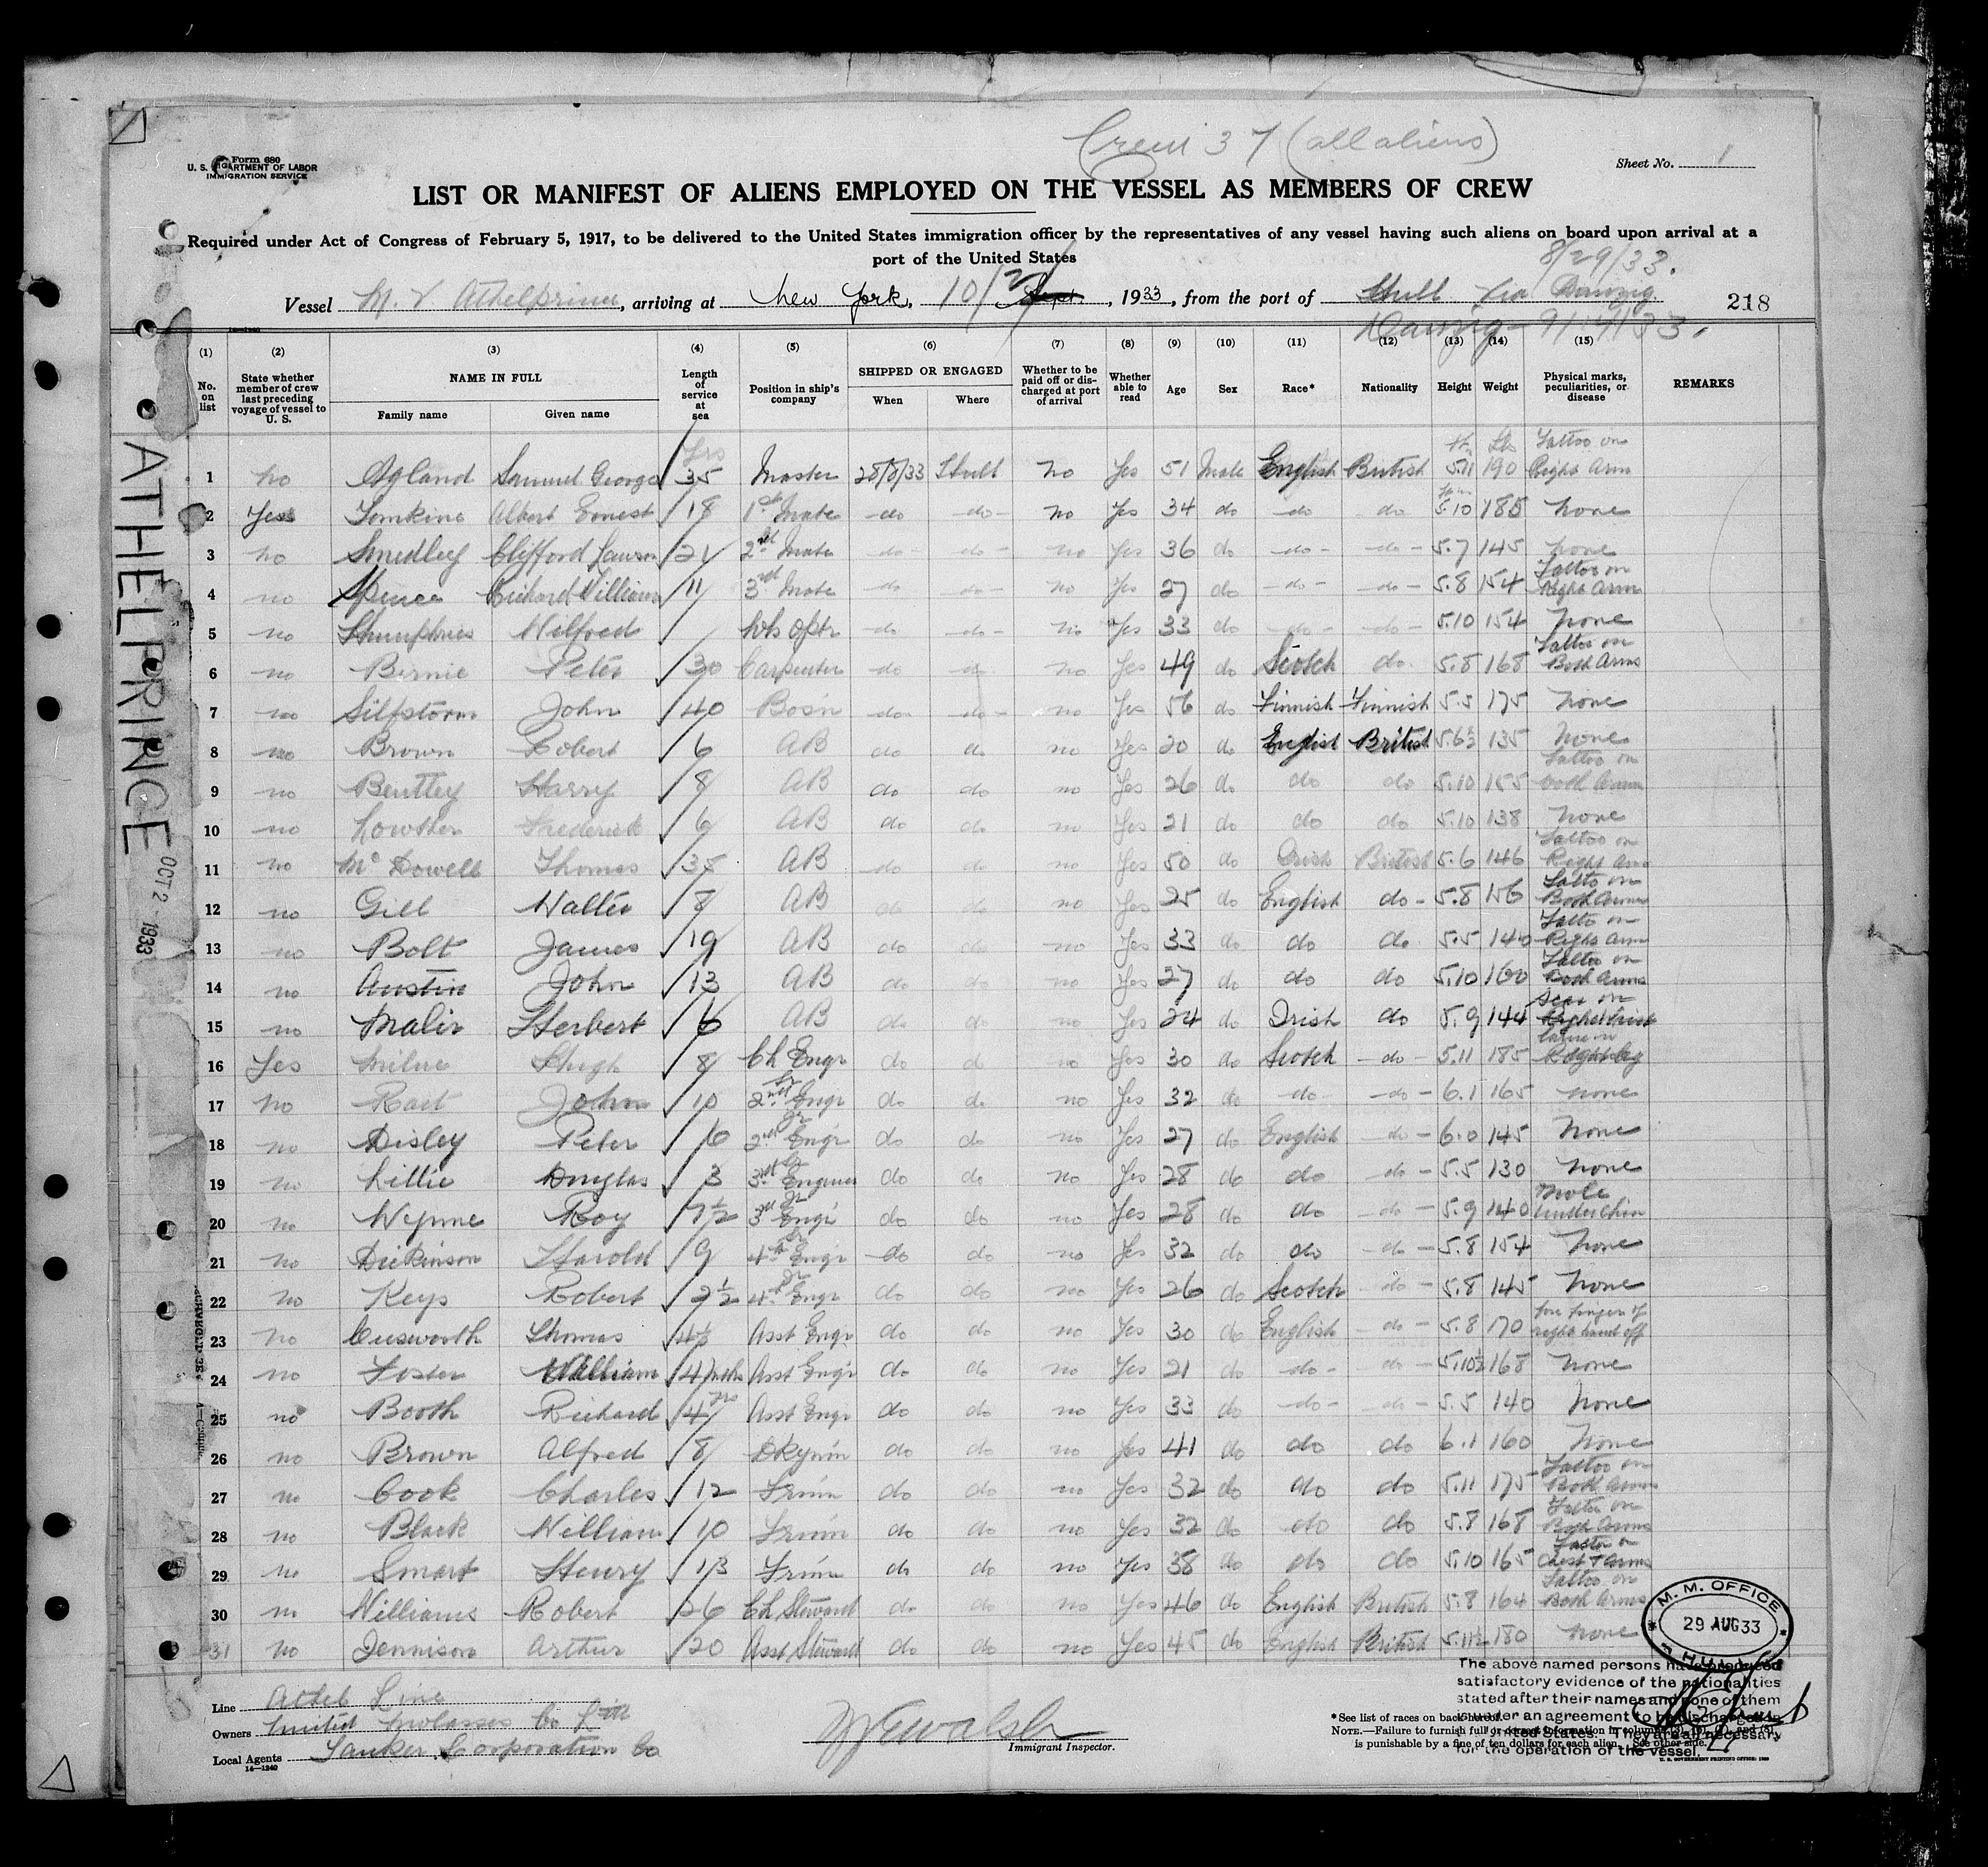 Crew 37 (all aliens)
Form 680
U. S. DEPARTMENT OF LABOR
IMMIGRATION SERVICE
Sheet No. 1
LIST OR MANIFEST OF ALIENS EMPLOYED ON THE VESSEL AS MEMBERS OF CREW
Required under Act of Congress of February 5, 1917, to be delivered to the United States immigration officer by the representatives of any vessel having such aliens on board upon arrival at a
port of the United States
8/29/33.
Vessel M.V Athelprince, arriving at New York, 10/2/ Sept., 1933, from the port of Hull via Danzig
218
Danzig - 9/14/33.
(1) (2) (3) (4) (5) (6) (7) (8) (9) (10) (11) (12) (13) (14) (15)
No. on list State whether member of crew last preceding voyage of vessel to U. S. NAME IN FULL Family name Given name Length of service at sea Position in ship's company SHIPPED OR ENGAGED When Where Whether to be paid off or discharged at port of arrival Whether able to read Age Sex Race* Nationality Height Weight Physical marks, peculiarities, or disease REMARKS
1 no Agland Samuel George 35 Master 28/8/33 Hull no Yes 51 Male English British 5.11 190 Tattoo on Right Arm
2 Yes Tomkins Albert Ernest 18 1st Mate do do no Yes 34 do do do 5.10 185 none
3 no Smedley Clifford Lawson 21 2nd Mate do do no Yes 36 do do do 5.7 145 none
4 no Spence Richard William 11 3rd Mate do do no Yes 27 do do do 5.8 154 Tattoo on Right Arm
5 no Humphries Wilfred do do no Yes 33 do do do 5.10 154 none
6 no Birnie Peter 30 Carpenter do do no Yes 49 do Scotch do 5.8 168 Tattoo on Both Arms
7 no Silfstorm John 40 Bosn do do no Yes 56 do Finnish Finnish 5.5 175 none
8 no Brown Robert 6 AB do do no Yes 20 do English British 5.6½ 135 none
9 no Bentley Harry 8 AB do do no Yes 26 do do do 5.10 155 Tattoo on both arms
10 no Lowther Frederick 6 AB do do no Yes 21 do do do 5.10 138 none
11 no McDowell Thomas 35 AB do do no Yes 50 do Irish British 5.6 146 Tattoo on Right Arm
12 no Gill Walter 8 AB do do no Yes 25 do English do 5.8 156 Tatto on Both Arms
13 no Bolt James 19 AB do do no Yes 33 do do do 5.5 140 Tatto on Right Arm
14 no Austin John 13 AB do do no Yes 27 do do do 5.10 160 Tattoo on Both Arms
15 no Malir Herbert 6 AB do do no Yes 24 do Irish do 5.9 144 Scar on Right Wrist
16 Yes Milne Hugh 8 Ch Engr do do no Yes 30 do Scotch do 5.11 185 Right Leg
17 no Rait John 10 2nd Sr Engr do do no Yes 32 do do do 6.1 165 none
18 no Disley Peter 6 2nd Jr Engr do do no Yes 27 do English do 6.0 145 none
19 no Lillie Douglas 3 3rd Sr Engineer do do no Yes 28 do do do 5.5 130 none
20 no Wynne Roy 7½ 3rd Jr Engr do do no Yes 28 do do do 5.9 140 Mole under Chin
21 no Dickinson Harold 9 4th Sr Engr do do no Yes 32 do do do 5.8 154 none
22 no Keys Robert 2½ 4th Jr Engr do do no Yes 26 do Scotch do 5.8 145 none
23 no Cusworth Thomas 4½ Asst Engr do do no Yes 30 do English do 5.8 170 fore finger of right hand off
24 no Foster William 4 mths Asst Engr do do no Yes 21 do do do 5.10½ 168 none
25 no Booth Richard 4 yrs Asst Engr do do no Yes 33 do do do 5.5 140 none
26 no Brown Alfred 8 Dkymn do do no Yes 41 do do do 6.1 160 none
27 no Cook Charles 12 do do no Yes 32 do do do 5.11 175 Tattoo on Both Arms
28 no Black William 10 do do no Yes 32 do do do 5.8 168 Tatto on Both Arms
29 no Smart Henry 13 do do no Yes 38 do do do 5.10 165 Tattoo on Chest & Arms
30 no Williams Robert 26 Ch Steward do do no Yes 46 do English British 5.8 164 Tattoo on Both Arms
31 no Dennison Arthur 20 Asst Steward do do no Yes 45 do English British 5.11½ 180 none
ATHELPRINCE
OCT 2 - 1933
M. M. OFFICE
29 AUG 33
HULL
The above named persons have produced
satisfactory evidence of the nationalities
stated after their names and none of them
is under an agreement to be discharged in
the United States. They are all necessary
for the operation of the vessel.
Line Athel Line
Owners United Molasses Co Ltd
Local Agents Tanker Corporation Co
14—1240
Immigrant Inspector.
*See list of races on back hereof.
NOTE.—Failure to furnish full or correct information in columns (3), (5), (7), and (8),
is punishable by a fine of ten dollars for each alien. See other side.
U. S. GOVERNMENT PRINTING OFFICE: 1930